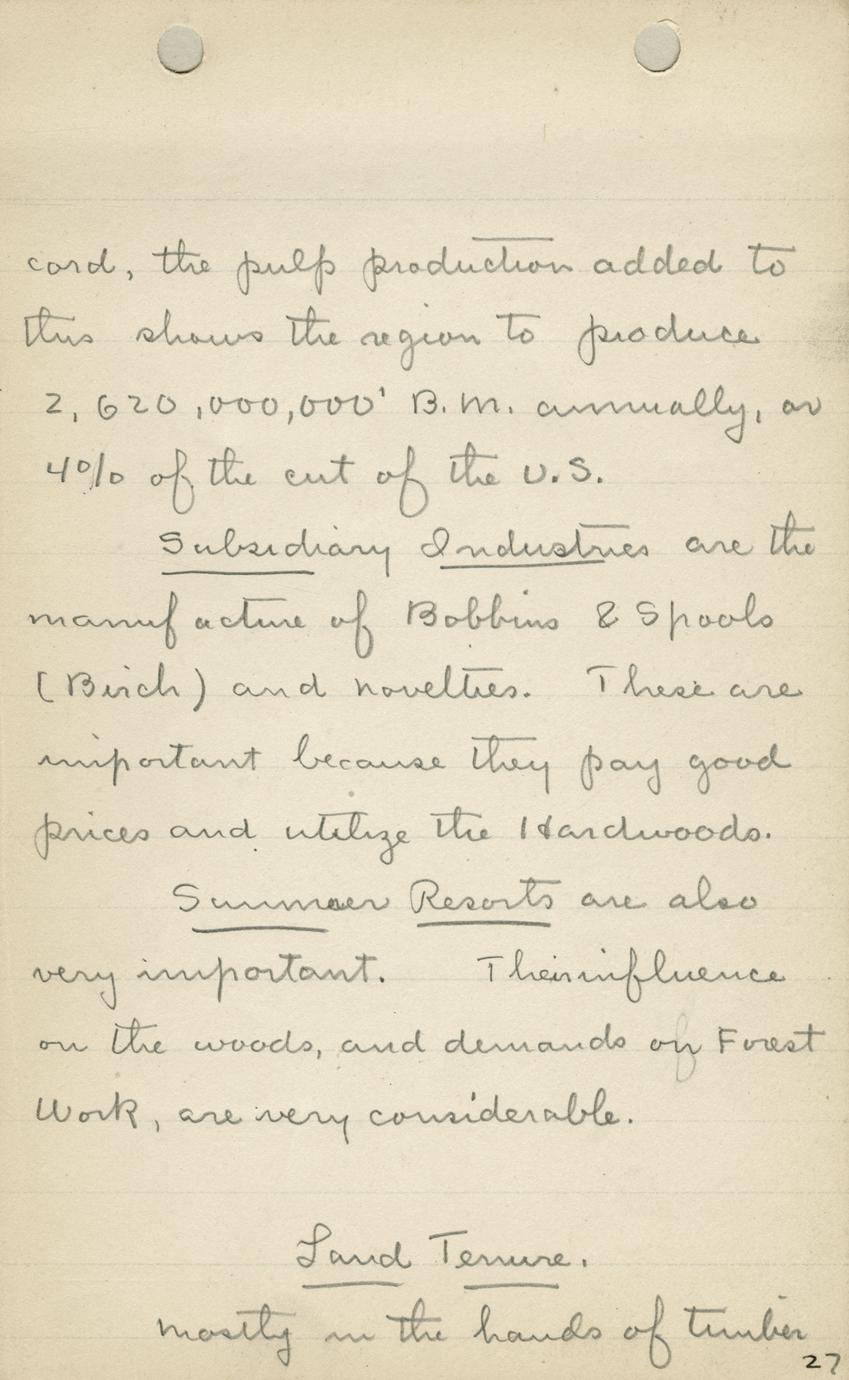 cord, the pulp production added to
this shows the region to produce
2,620,000,000' B.M. annually, or
4% of the cut of the U.S.
Subsidiary Industries are the
manufacture of Bobbins & Spools
(Birch) and novelties. These are
important because they pay good
prices and utilize the Hardwoods.
Summer Resorts are also
very important. Their influence
on the woods, and demands on Forest
Work, are very considerable.
Land Tenure.
Mostly in the hands of timber
27